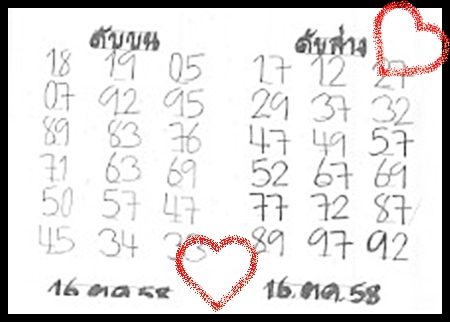 ดับบน
18 19 05
07 92 95
89 83 76
71 63 69
50 57 47
45 34
16 ตค 58
ดับล่าง
17 12 27
29 37 32
47 49 57
52 67 69
77 72 87
89 97 92
16. ตค. 58